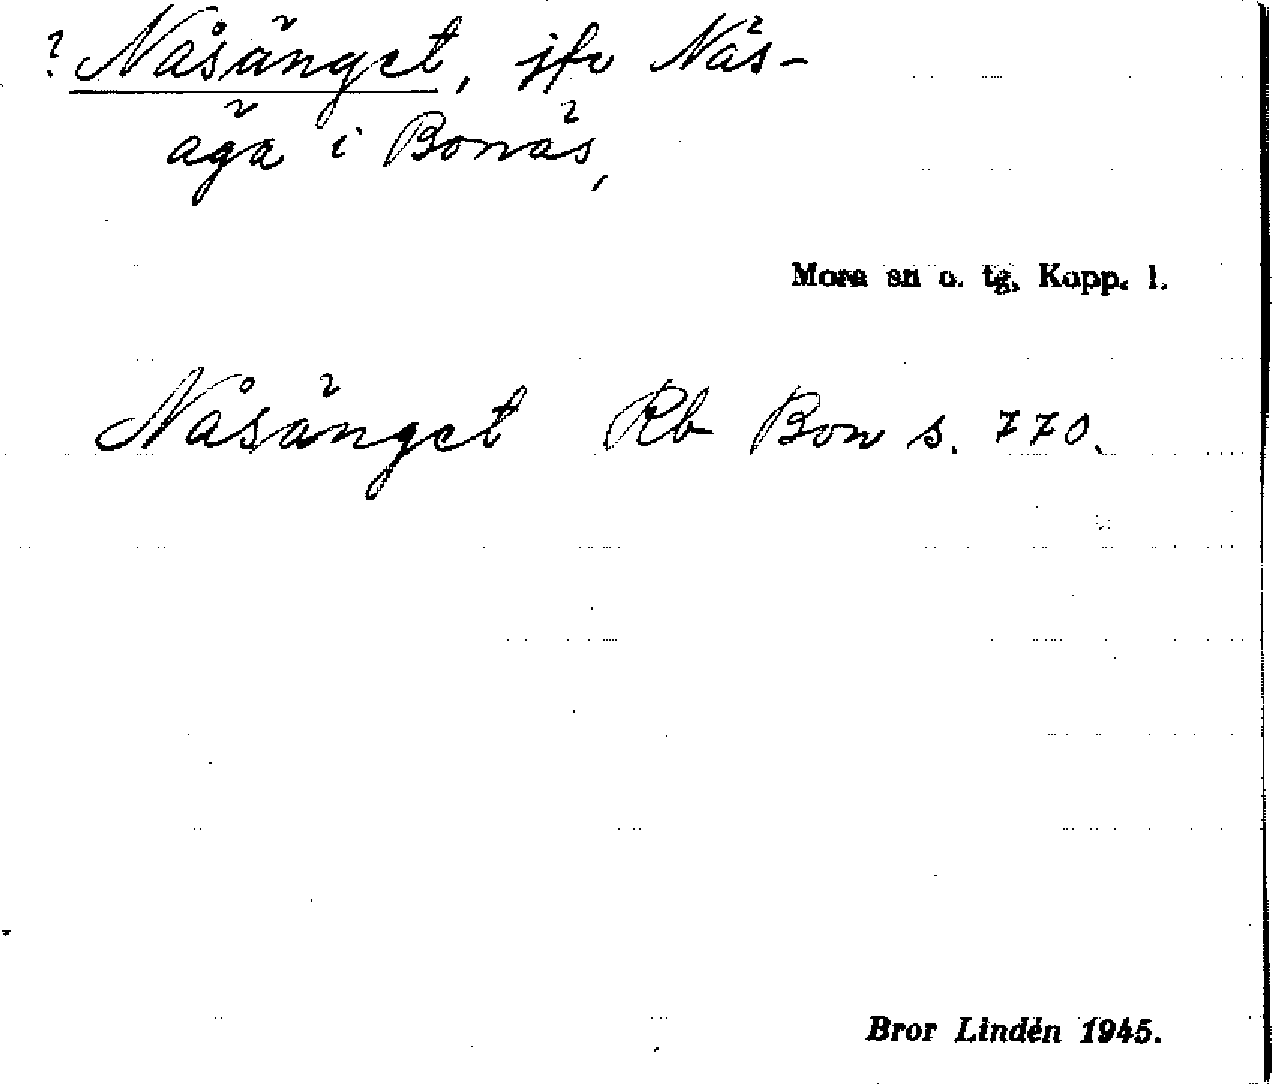 ? Nåsänget, jfr Näs-
äga i Bonäs,
Mora sn o. tg, Kopp. l.
Nåsänget Rb Bon s. 770.
Bror Lindén 1945.